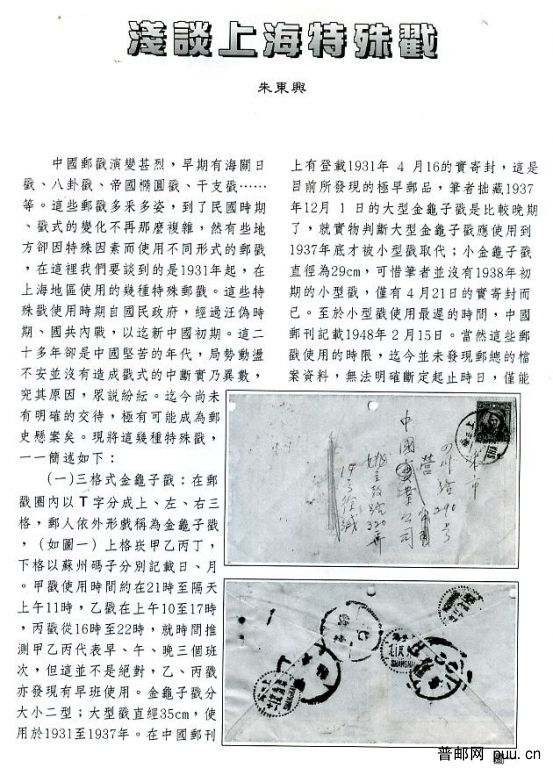 淺談上海特殊戳
朱東興
中國郵戳演變甚烈，早期有海關日
戳、八卦戳、帝國橢圓戳、干支戳……
等。這些郵戳多釆多姿，到了民國時期
、戳式的變化不再那麼複雜，然有些地
方卻因特殊因素而使用不同形式的郵戳
，在這裡我們要談到的是1931年起，在
上海地區使用的幾種特殊郵戳。這些特
殊戳使用時期自國民政府，經過汪偽時
期、國共內戰，以迄新中國初期。這二
十多年卻是中國堅苦的年代，局勢動盪
不安並沒有造成戳式的中斷實乃異數，
究其原因，眾說紛紜。迄今尚未
有明確的交待，極有可能成為郵
史懸案矣。現將這幾種特殊戳，
一一簡述如下：
(一)三格式金龜子戳：在郵
戳圈內以T字分成上、左、右三
格，郵人依外形戲稱為金龜子戳
，（如圖一）上格崁甲乙丙丁，
下格以蘇州碼子分別記載日、月
。甲戳使用時間約在21時至隔天
上午11時，乙戳在上午10至17時
，丙戳從16時至22時，就時間推
測甲乙丙代表早、午、晚三個班
次，但這並不是絕對，乙、丙戳
亦發現有早班使用。金龜子戳分
大小二型；大型戳直經35cm，使
用於1931至1937年。在中國郵刊
上有登載1931年 4 月16的實寄封，這是
目前所發現的極早郵品，筆者拙藏1937
年12月 1 日的大型金龜子戳是比較晚期
了，就實物判斷大型金龜子戳應使用到
1937年底才被小型戳取代；小金龜子戳
直徑為29cm，可惜筆者並沒有1938年初
期的小型戳，僅有 4 月21日的實寄封而
已。至於小型戳使用最遲的時間，中國
郵刊記載1948年 2 月15日。當然這些郵
戳使用的時限，迄今並未發現郵總的檔
案資料，無法明確斷定起止時日，僅能
本市
四川路290号
中國
營業公司
圖一
普邮网 puu.cn